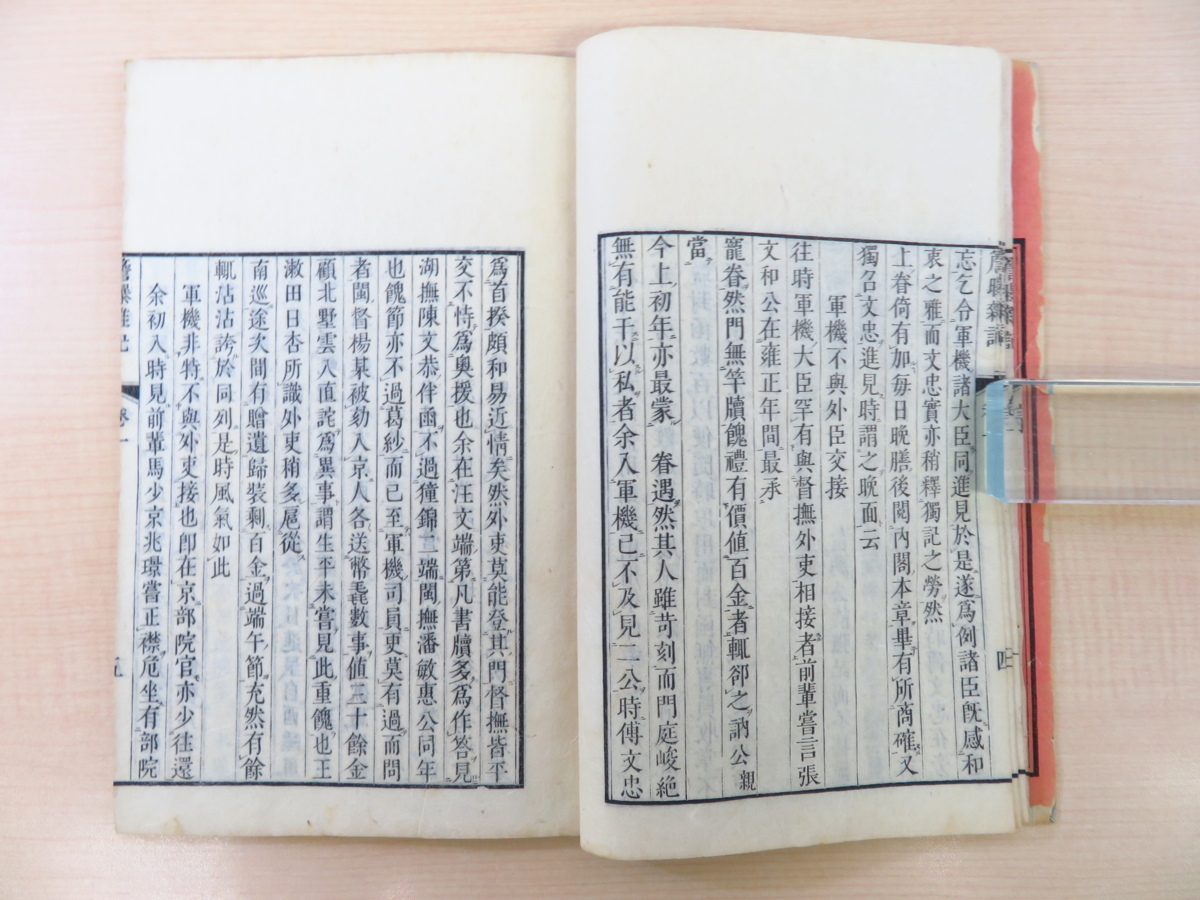 簷曝雜記
忘乞令軍機諸大臣同進見於是遂爲例諸臣旣感和
衷之雅而文忠實亦稍釋獨記之勞然
上眷倚有加每日晚膳後閱內閣本章畢有所商確又
獨召文忠進見時謂之晚面云
軍機不與外臣交接
往時軍機大臣罕有與督撫外吏相接者前輩嘗言張
文和公在雍正年間最承
寵眷然門無竿牘餽禮有價値百金者輒郤之訥公親
當
今上初年亦最蒙 眷遇然其人雖苛刻而門庭峻絕
無有能干以私者余入軍機已不及見二公時傅文忠
四
爲首揆頗和易近情矣然外吏莫能登其門督撫皆平
交不恃爲奧援也余在汪文端第凡書牘多爲作答見
湖撫陳文恭伴函不過獞錦二端閩撫潘敏惠公同年
也餽節亦不過葛紗而已至軍機司員更莫有過而問
者閩督楊某被劾入京人各送幣毳數事値三十餘金
顧北墅雲入直詫爲異事謂生平未嘗見此重餽也王
漱田日杏所識外吏稍多扈從
南巡途次間有贈遺歸裝剩百金過端午節充然有餘
輒沾沾誇於同列是時風氣如此
軍機非特不與外吏接也卽在京部院官亦少往還
余初入時見前輩馬少京兆璟嘗正襟危坐有部院
簷曝雜記
卷一
五